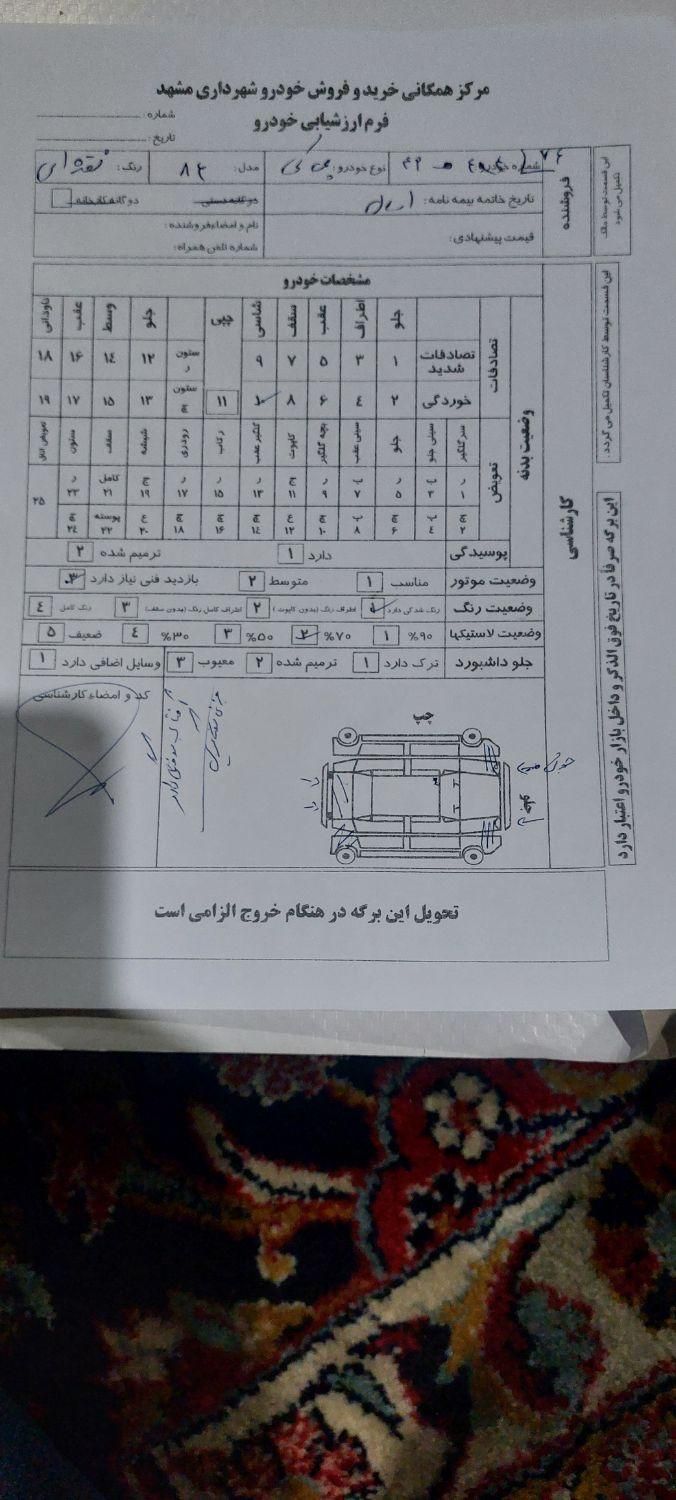 مرکز همگانی خرید و فروش خودرو شهرداری مشهد
فرم ارزشیابی خودرو
شماره:
تاریخ:
این قسمت توسط مالک تکمیل می شود
فروشنده
شماره خودرو: نوع خودرو: مدل: ۸۲ رنگ: نقره ای
تاریخ خاتمه بیمه نامه: دوگانه دستی دوگانه کارخانه
قیمت پیشنهادی: نام و امضاء فروشنده:
شماره تلفن همراه:
این قسمت توسط کارشناسان تکمیل می گردد.
کارشناسی
مشخصات خودرو
وضعیت بدنه
تصادفات
جلو اطراف عقب سقف شاسی جلو وسط عقب ناودانی
تصادفات شدید ۱ ۳ ۵ ۷ ۹ ستون ر ۱۲ ۱۴ ۱۶ ۱۸
خوردگی ۲ ٤ ۶ ۸ ۱۰ ۱۱ ستون چ ۱۳ ۱۵ ۱۷ ۱۹
تعویض
سر گلگیر سینی جلو جلو سینی عقب بچه گلگیر کاپوت گلگیر عقب رکاب رودری شیشه سقف ستون تعویض اتاق
ر ۱ ر ۵ ر ۹ ر ۱۳ ر ۱۵ ر ۱۷ کامل ۲۱ ر ۲۳ ۲۵
چ ۲ چ ۶ چ ۱۰ ع ۱۲ چ ۱۴ چ ۱۶ چ ۱۸ ع ۲۰ پوسته ۲۲ چ ۲۴
پوسیدگی دارد ۱ ترمیم شده ۲
وضعیت موتور مناسب ۱ متوسط ۲ بازدید فنی نیاز دارد ۳
وضعیت رنگ رنگ شدگی دارد ۱ اطراف رنگ (بدون کاپوت) ۲ اطراف کامل رنگ (بدون سقف) ۳ رنگ کامل ٤
وضعیت لاستیکها ۹۰% ۱ ۷۰% ۲ ۵۰% ۳ ۳۰% ٤ ضعیف ۵
جلو داشبورد ترک دارد ۱ ترمیم شده ۲ معیوب ۳ وسایل اضافی دارد ۱
کد و امضاء کارشناسی
چپ
این برگه صرفاً در تاریخ فوق الذکر و داخل بازار خودرو اعتبار دارد
تحویل این برگه در هنگام خروج الزامی است